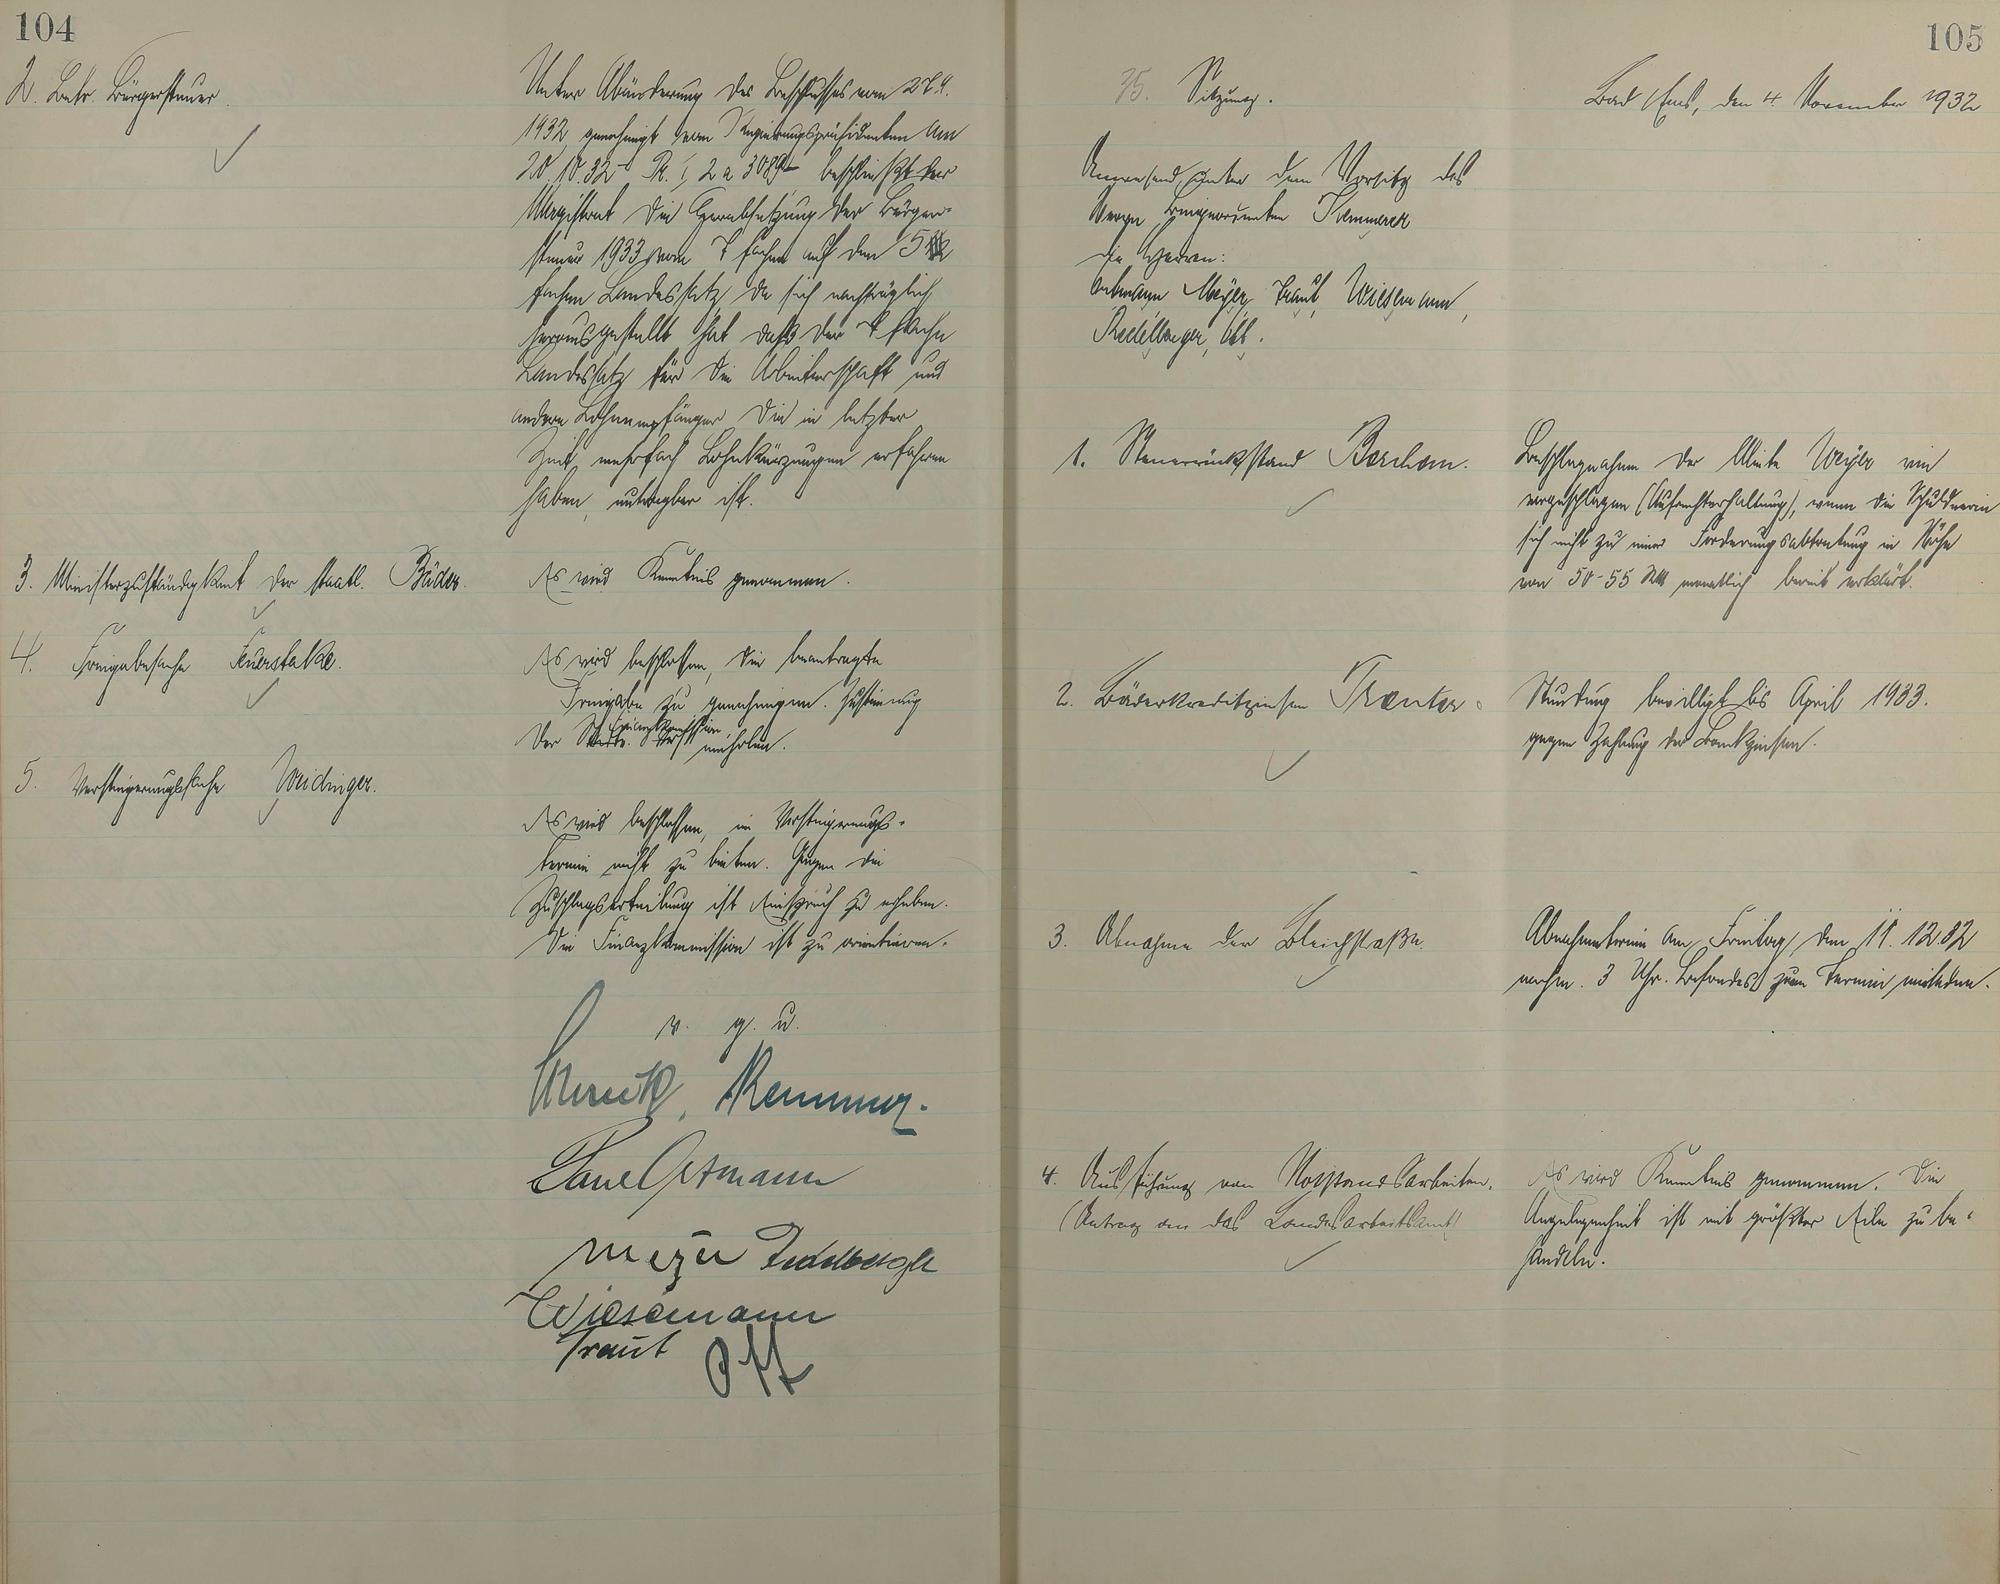 104
2. Betr. Bürgersteuer.
Unter Abänderung des Beschlusses vom 27.9.
1932, genehmigt vom Regierungspräsidenten am
20.10.32 - Pr. I, 2 a 3089 - beschließt der
Magistrat die Herabsetzung der Bürger-
steuer 1933 vom 7 fachen auf den 5
fachen Landessatz, da sich nachträglich
herausgestellt hat, daß der 7 fache
Landessatz für die Arbeiterschaft und
andere Lohnempfänger die in letzter
Zeit mehrfach Lohnkürzungen erfahren
haben, untragbar ist.
3. Ministerzuständigkeit der staatl. Bäder.
Es wird Kenntnis genommen.
4. Freigabesache Feuerstake.
Es wird beschlossen, die beantragte
Freigabe zu genehmigen. Zustimmung
der Finanzkommission einholen.
5. Versteigerungssache Weidinger.
Es wird beschlossen, im Versteigerungs-
termin nicht zu bieten. Gegen die
Zuschlagserteilung ist Einspruch zu erheben.
Die Finanzkommission ist zu orientieren.
v. g. u.
Kemmerer.
Ortmann
Meyer Redelberger
Wiesemann
Traut Ott
105
75. Sitzung.
Bad Ems, den 4. November 1932
Anwesend unter dem Vorsitz des
Herrn Beigeordneten Kemmerer
die Herren:
Ortmann Meyer, Traut, Wiesemann,
Redelberger, Ott.
1. Steuerrückstand Borchem.
Beschlagnahme der Miete Weyer
vorgeschlagen (Aufrechterhaltung), wenn die Schuldnerin
sich nicht zu einer Forderungsabtretung in Höhe
von 50-55 RM monatlich bereit erklärt.
2. Bäderkreditzinsen
Stundung bewilligt bis April 1933.
gegen Zahlung der Bankzinsen.
3. Abnahme der Bleichstraße.
Abnahmetermin am Freitag, den 11. 12 32
nachm. 3 Uhr. Besonders zum Termin einladen.
4. Ausführung von Notstandsarbeiten.
(Antrag an das Landesarbeitsamt)
Es wird Kenntnis genommen. Die
Angelegenheit ist mit größter Eile zu be-
handeln.